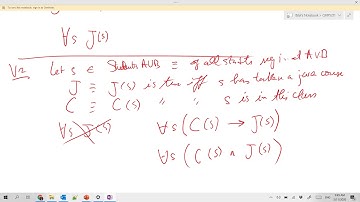 ∀s J(s)
V2 Let s ∈ Students AUB ≡ of all students regi at AUB
J ≡ J(s) is true iff s has taken a java course
C ≡ C(s) " " s is in this class
∀s J(s) ∀s (C(s) → J(s))
∀s (C(s) ∧ J(s))